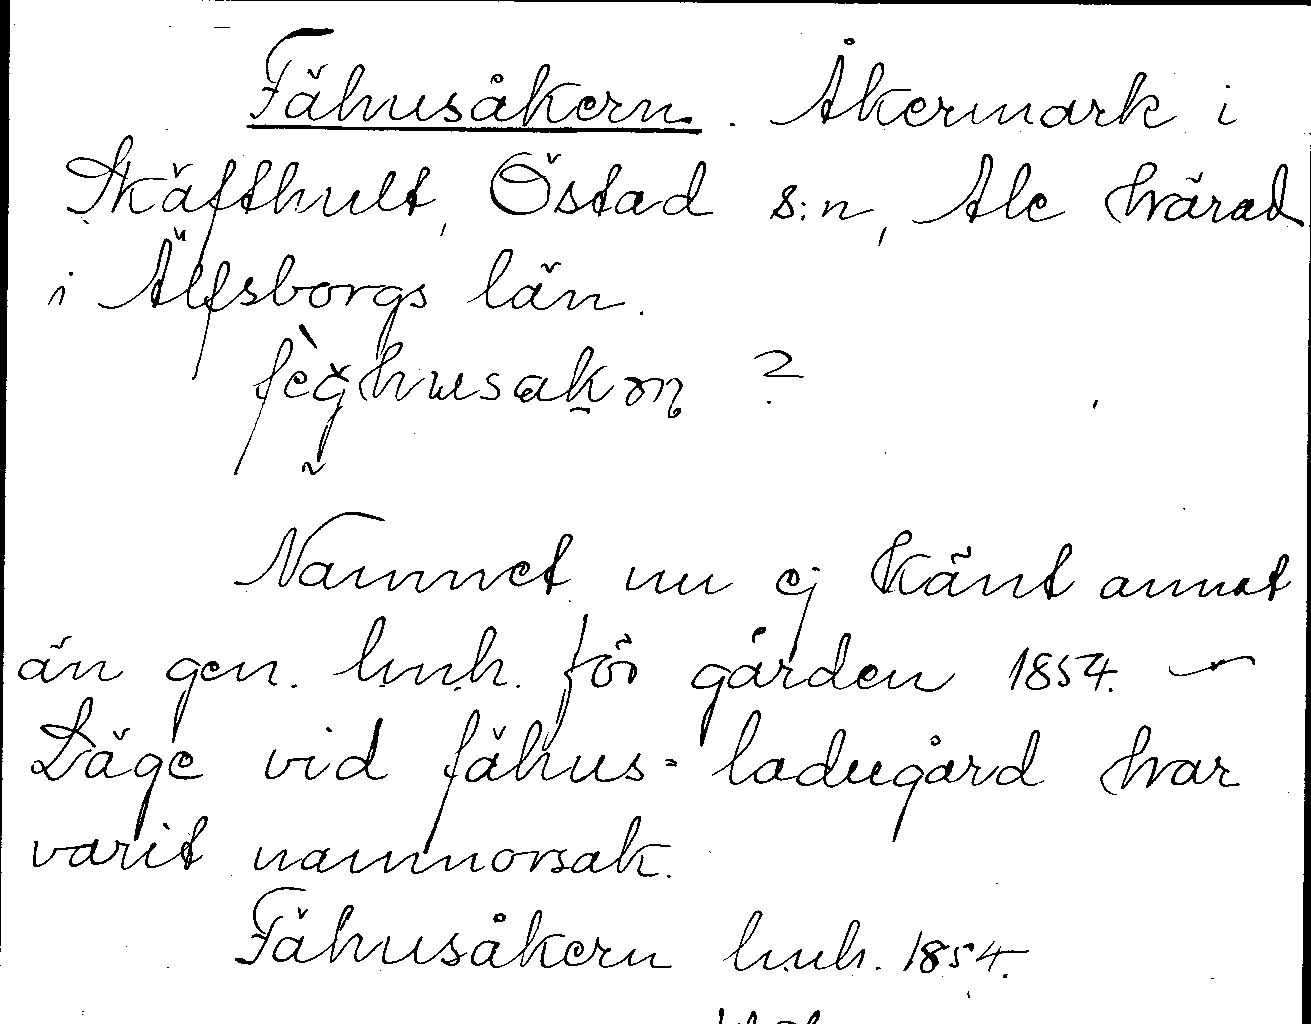 Fähusåkern. Åkermark i
Skäfthult, Östad s:n, Ale härad
i Älfsborgs län.
fèghusakɷn ?
Namnet nu ej känt annat
än gen. lmh. för gården 1854. –
Läge vid fähus - ladugård har
varit namnorsak.
Fähusåkern lmh. 1854.